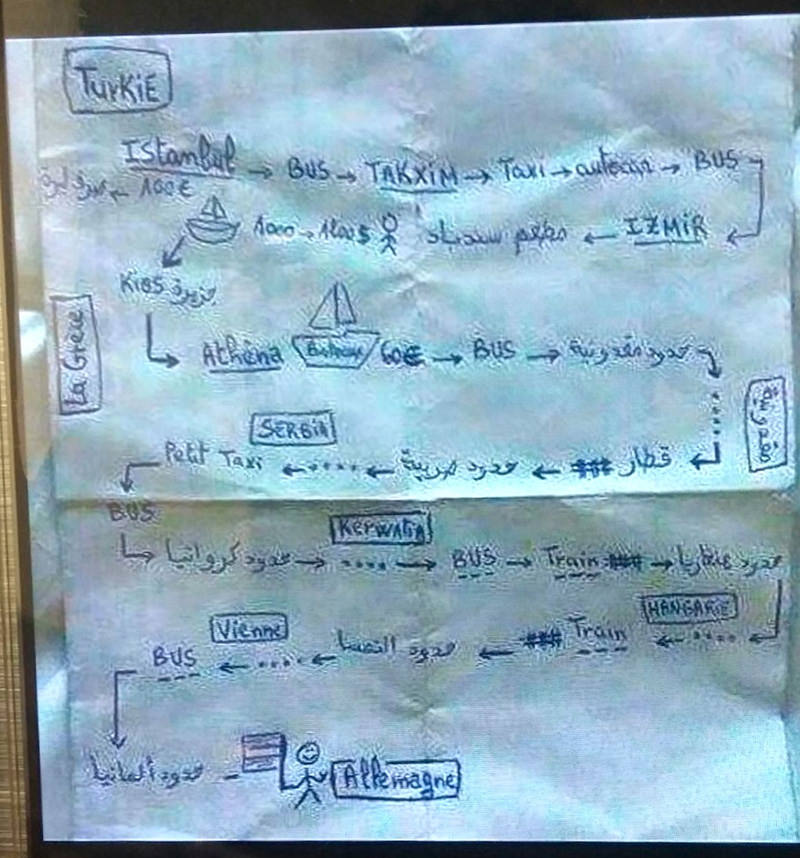 TurKiE
Istanbul → BUS → TAKXIM → Taxi → autocar → BUS
← 100€
IZMIR ← مطعم سندباد 1000 → 1200$
KiOS جزيرة
La Grèce
Athèna 60€ → BUS → حدود مقدونية
مقدونية
قطار ### ← حدود صربية ← •••• ←
SERBIA
Petit Taxi
BUS
KERWATIA
حدود كرواتيا → •••• → BUS → Train ### → حدود هنغاريا
HANGARIE
•••• ← Train ### ← حدود النمسا ← •••• ← BUS
Vienne
حدود ألمانيا
Allemagne